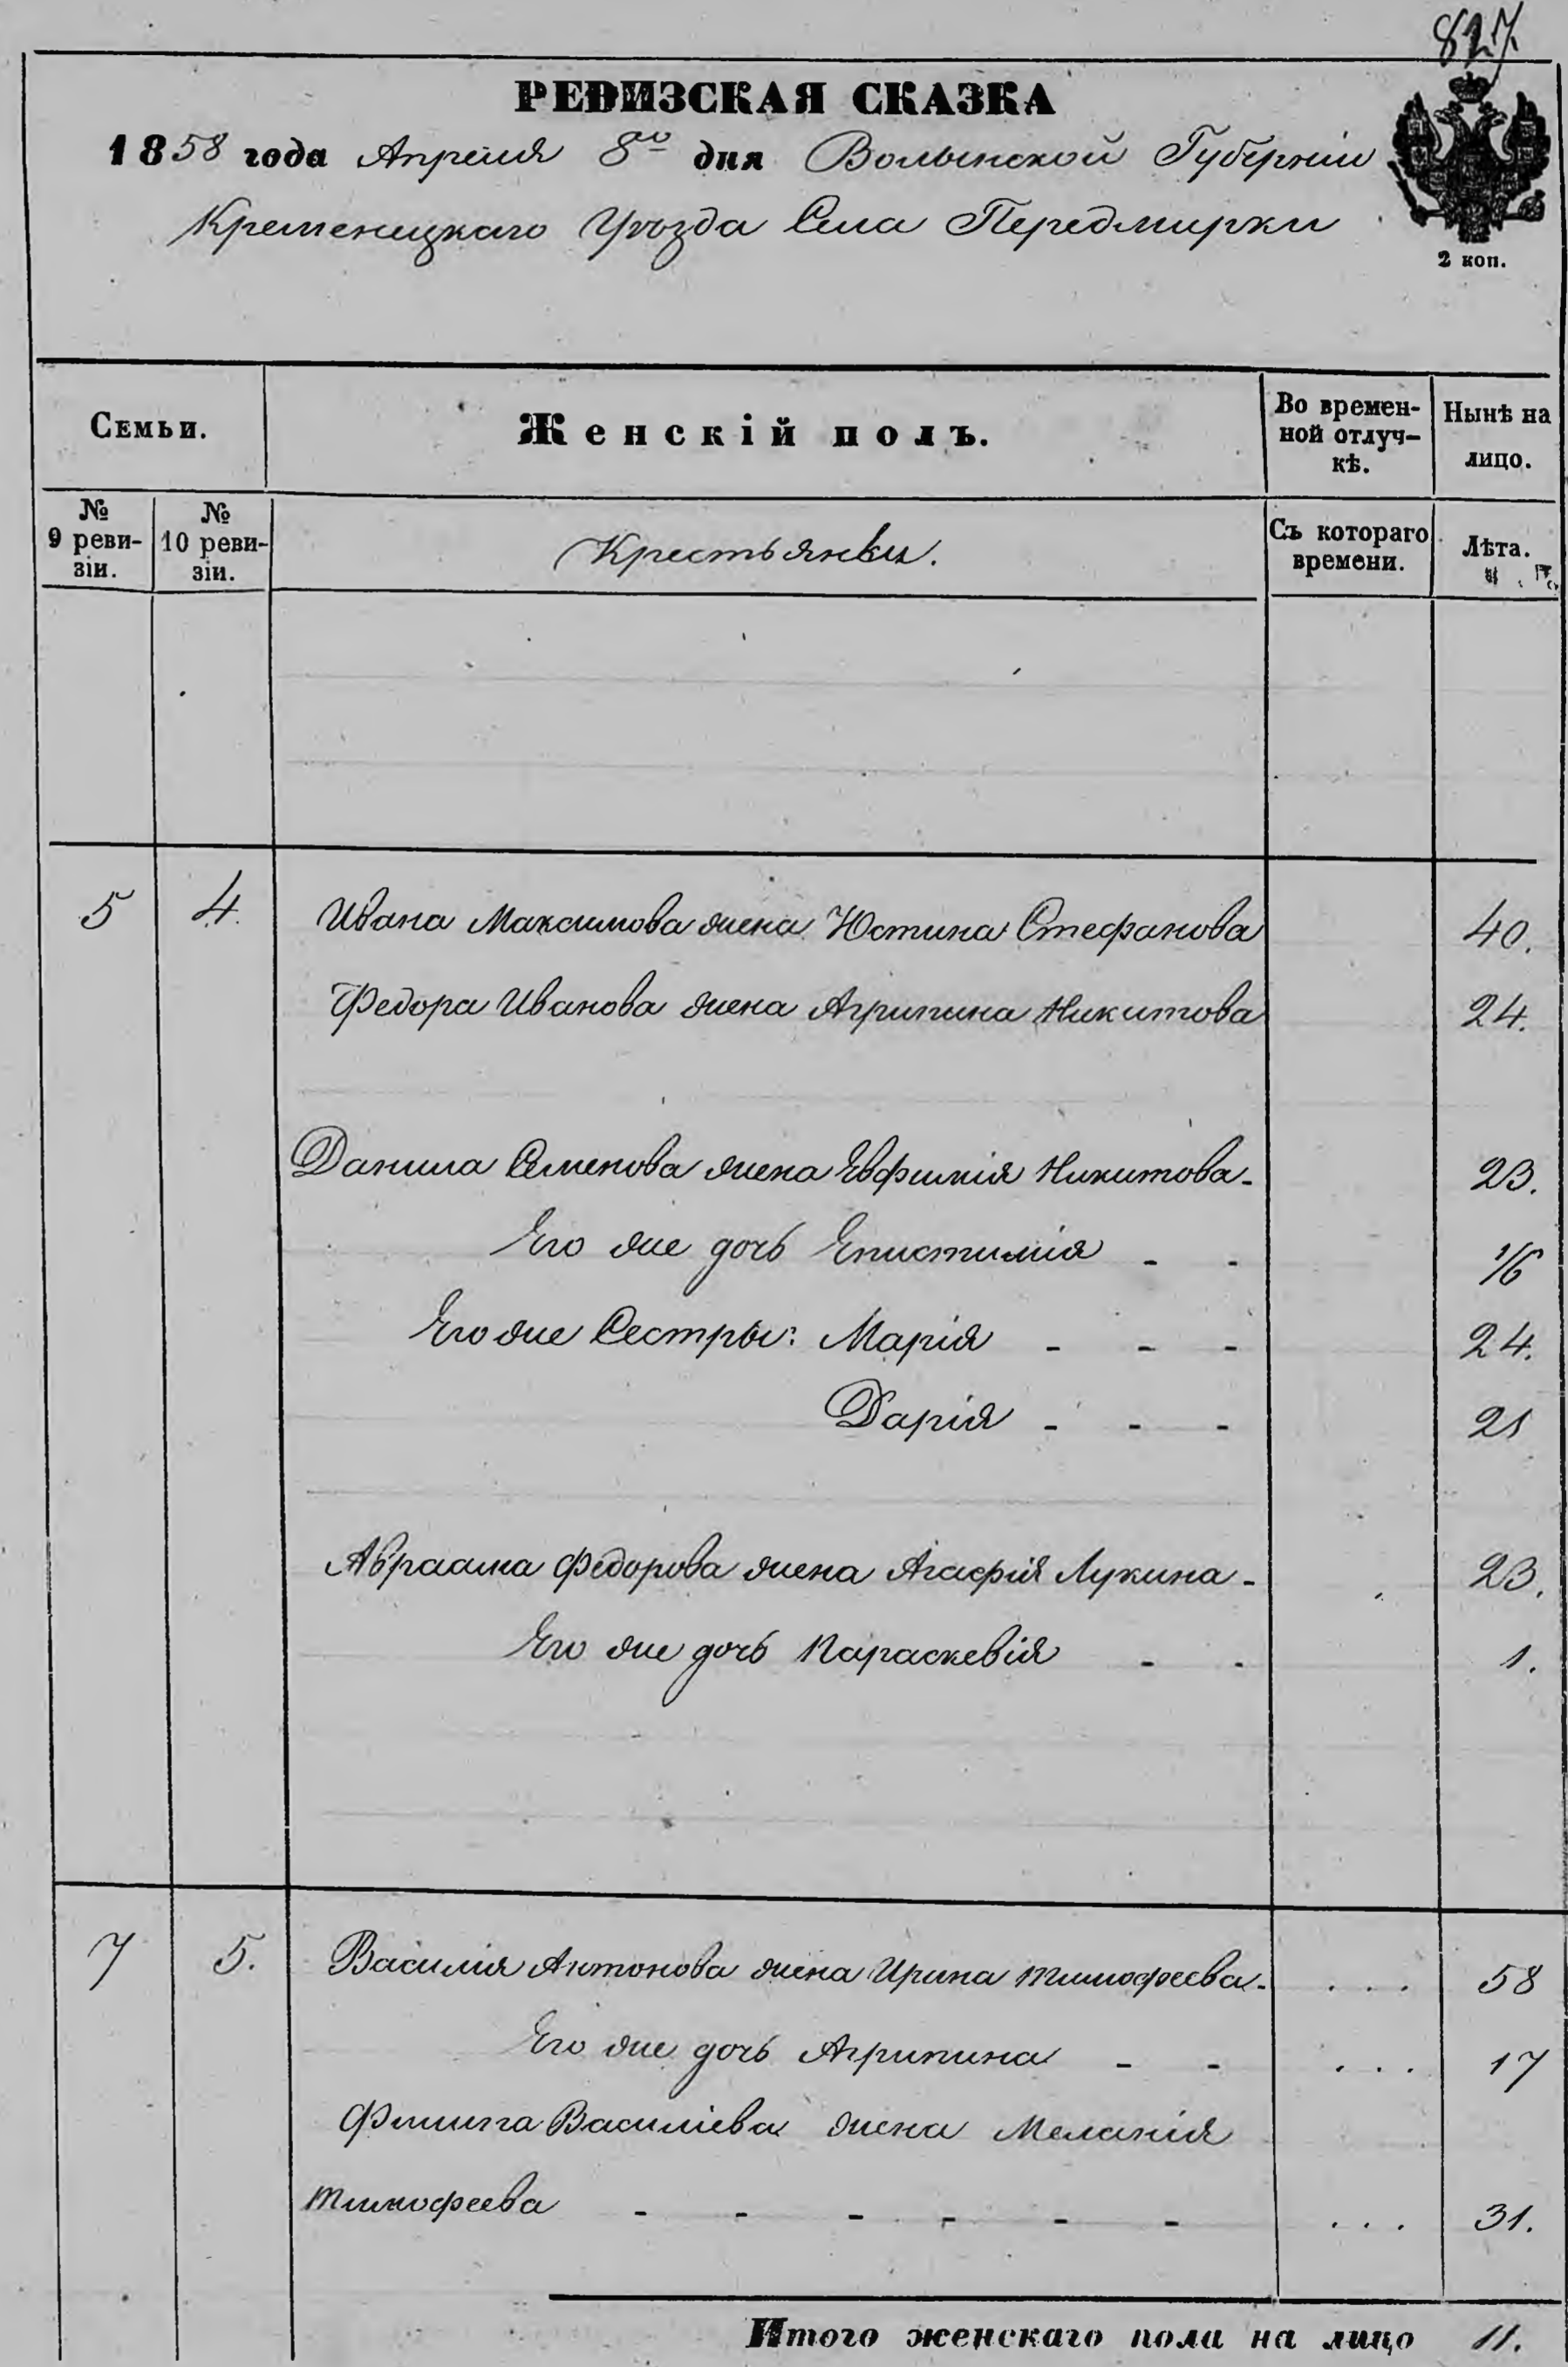 827
РЕВИЗСКАЯ СКАЗКА
1858 года Апреля 8го дня Волынской Губерніи
Кременецкаго Уѣзда Села Передмирки
2 коп.
Семьи.
Женскій полъ.
Во времен-
ной отлуч-
кѣ.
Нынѣ на
лицо.
№
9 реви-
зіи.
№
10 реви-
зіи.
Крестьянки.
Съ котораго
времени.
Лѣта.
5 4. Ивана Максимова жена Юстина Стефанова 40.
Федора Иванова жена Агрипина Никитова 24.
Данила Семенова жена Евфимія Никитова - 23.
Его же дочь Епистимія - - 1/6
Его же Сестры: Марія - - - 24.
Дарія - - - 21
Авраама Федорова жена Агафія Лукина - 23.
Его же дочь Параскевія - - 1.
7 5. Василія Антонова жена Ирина Тимофеева - . . . 58
Его же дочь Агрипина - - . . . 17
Филипа Василіева жена Меланія
Тимофеева - - - - - - . . . 31.
Итого женскаго пола на лицо 11.